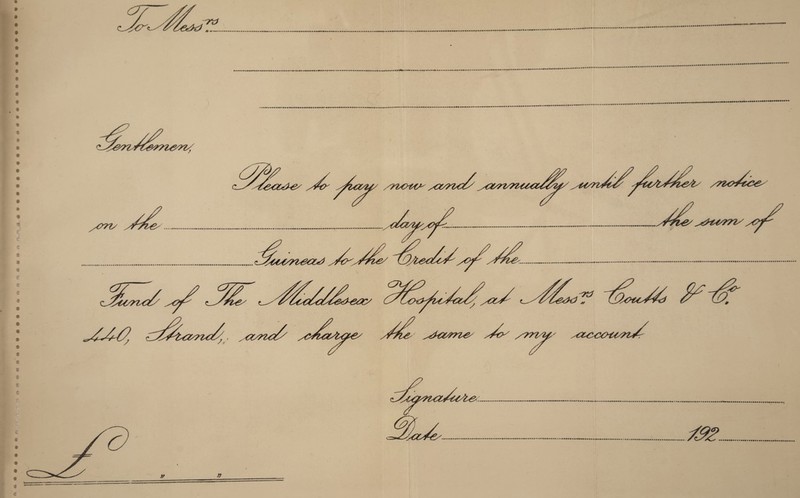 To Messrs
Gentlemen,
Please to pay now and annually until further notice
on the day of the sum of
Guineas to the Credit of the
Fund of The Middlesex Hospital, at Messrs Coutts & Co.
440, Strand, and charge the same to my account.
Signature
Date 192
£ " "